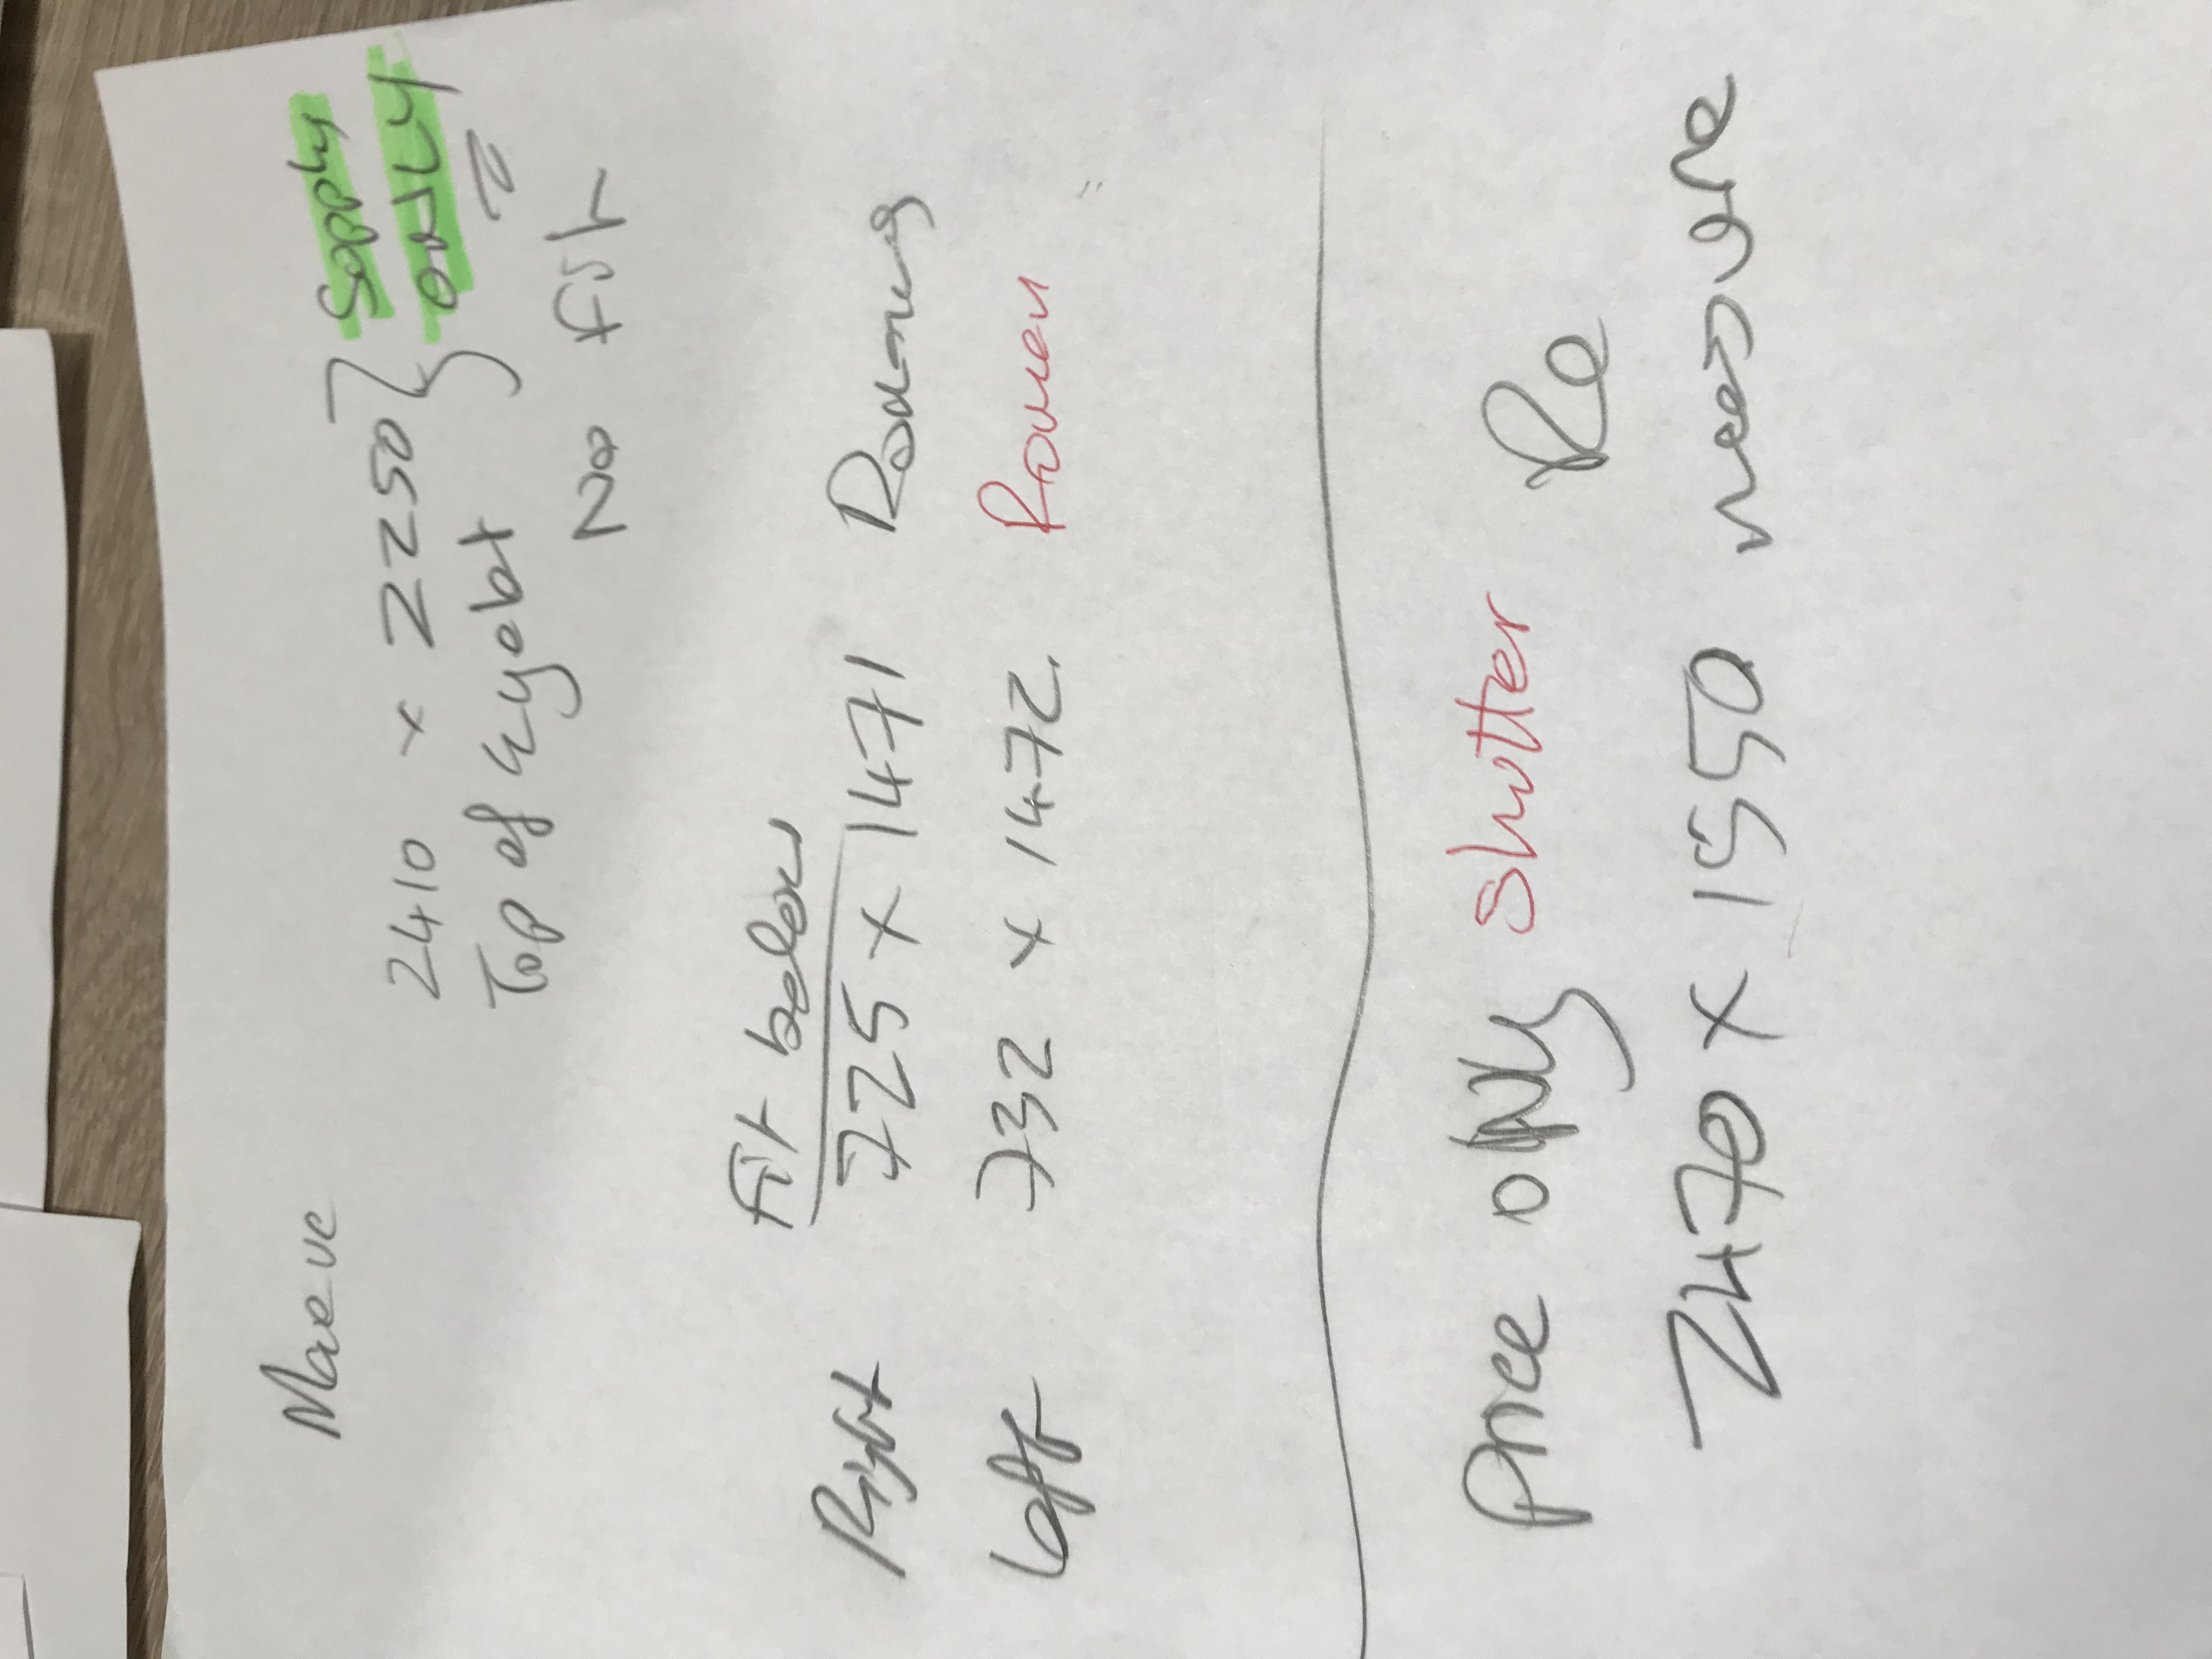 Maeve
2410 x 2250 } Supply
Top of eyebt } ONLY
No fit
Fit below
Right 725 x 1471 Romans
Left 732 x 1472. Roman "
Price only Shutter Re
2470 x 1550 measure